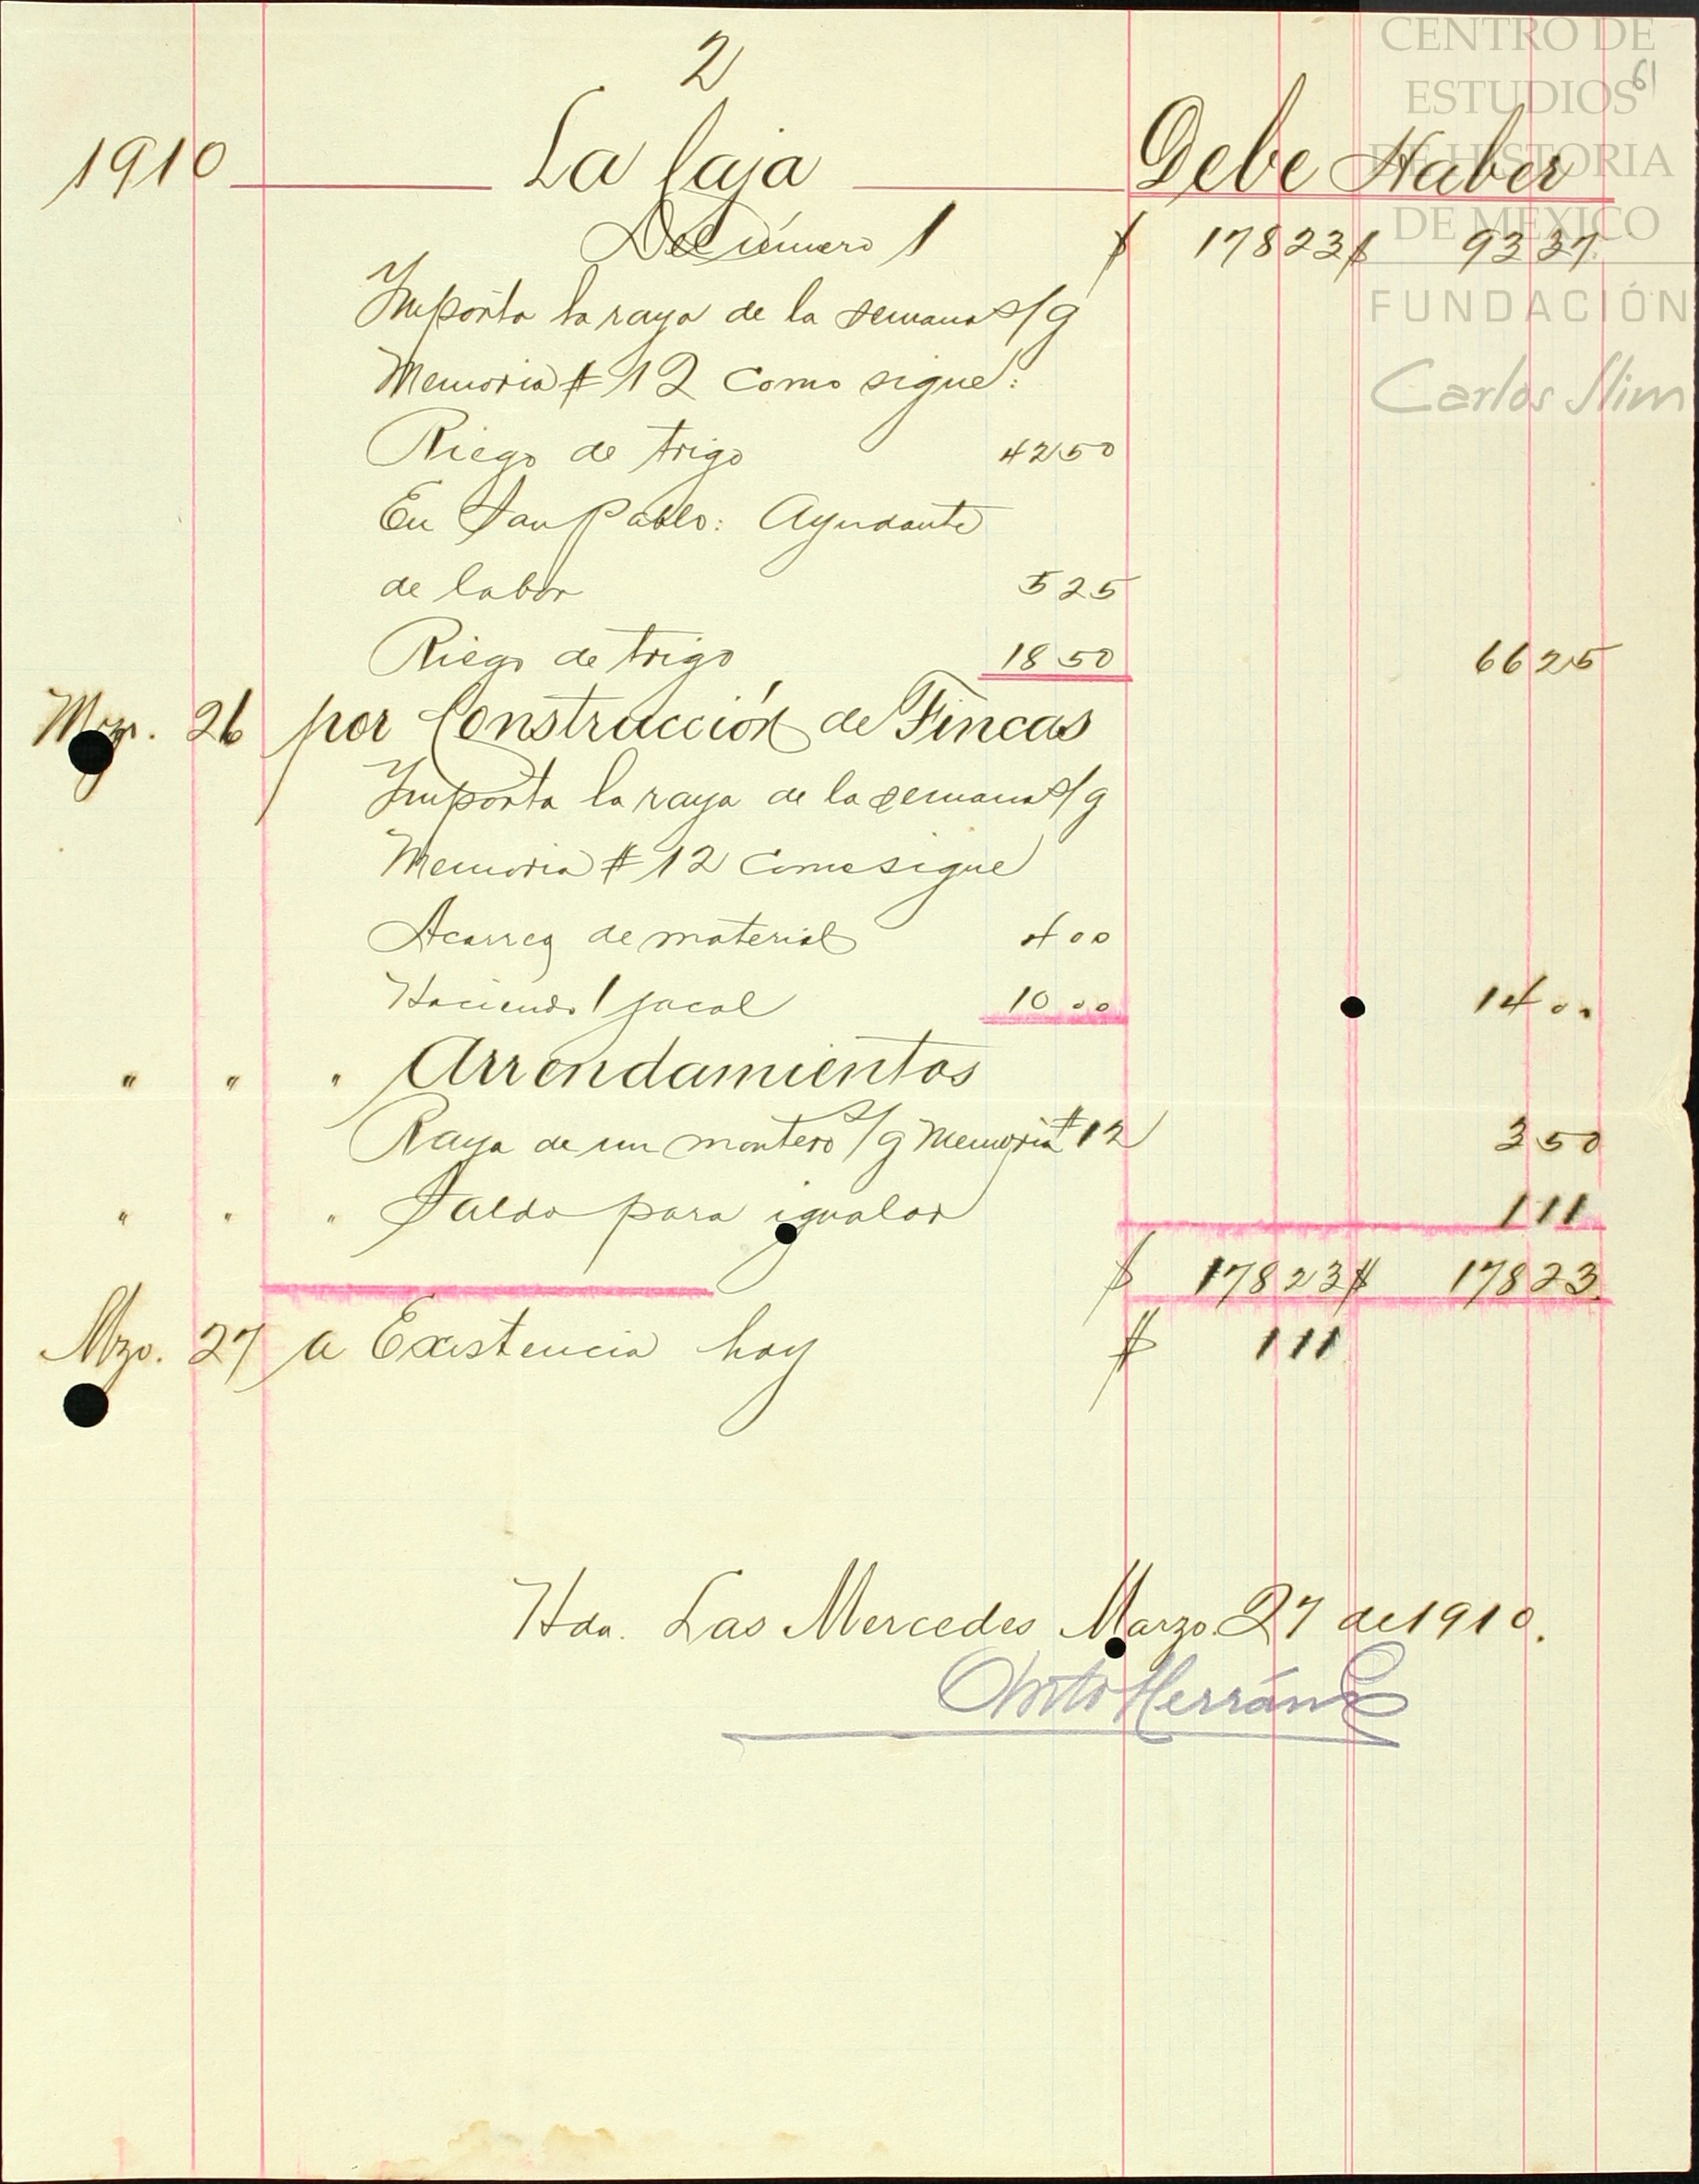 2
CENTRO DE
ESTUDIOS
DE HISTORIA
DE MEXICO
FUNDACIÓN
Carlos Slim
61
1910 La Caja Debe Haber
Del número 1 $ 178 23 $ 93 37
Importa la raya de la semana s/g
Memoria # 12 como sigue:
Riego de trigo 42 50
En San Pablo: Ayudante
de labor 5 25
Riego de trigo 18 50 66 25
Mzo. 26 por Construcción de Fincas
Importa la raya de la semana s/g
Memoria # 12 como sigue
Acarreo de material 4 00
Haciendo 1 jacal 10 00 14 00
" " " Arrendamientos
Raya de un montero s/g Memoria # 12 3 50
" " " Saldo para igualar 1 11
$ 178 23 $ 178 23
Mzo. 27 a Existencia hoy $ 1 11
Hda. Las Mercedes Marzo 27 de 1910.